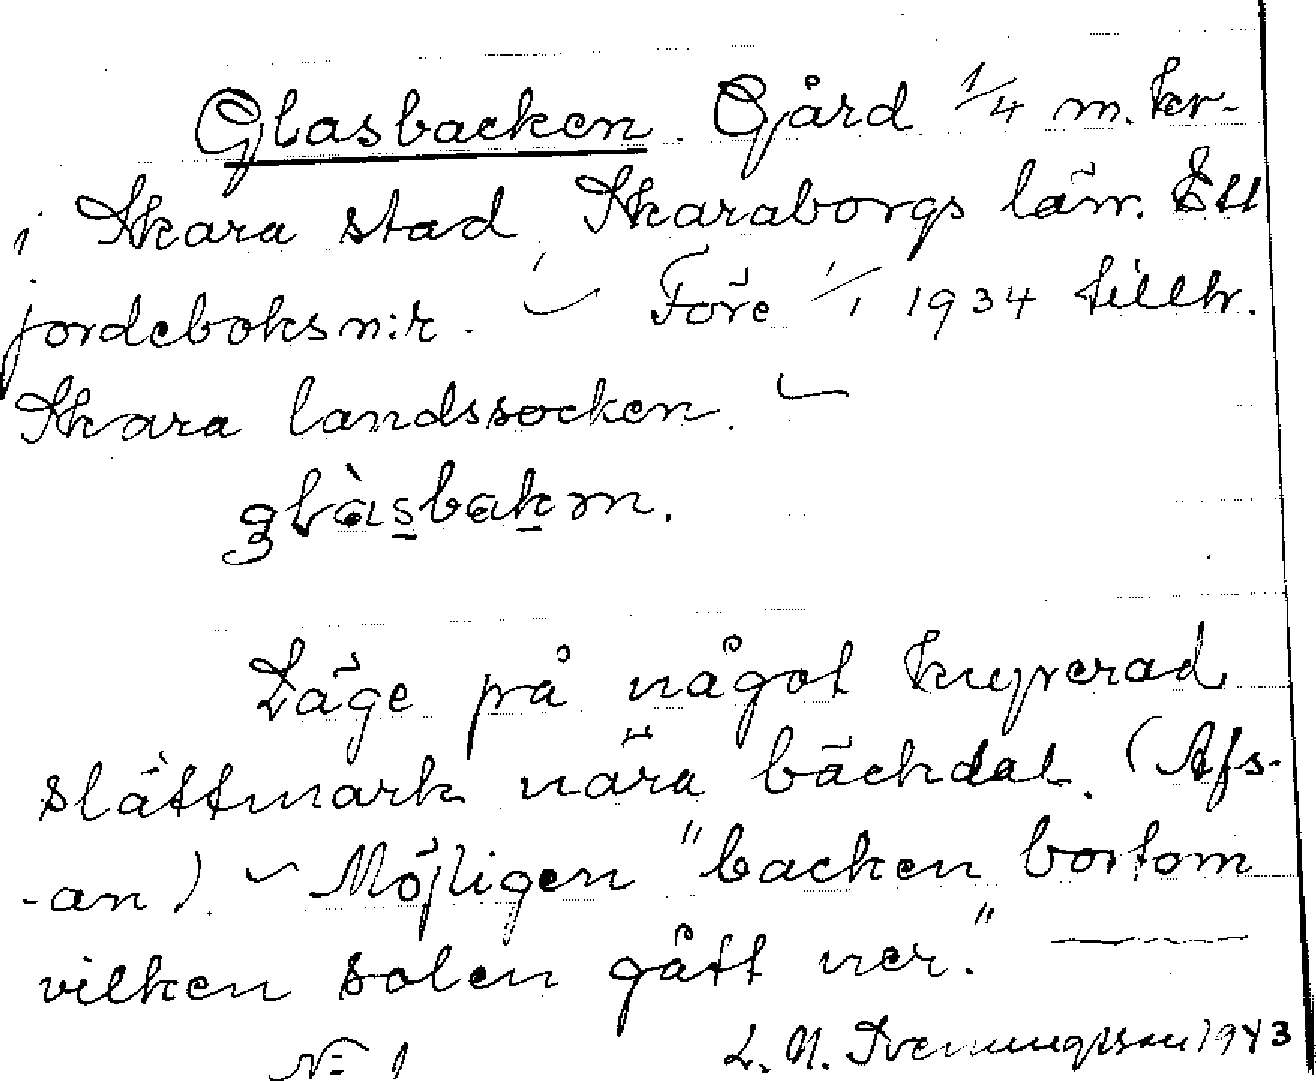 Glasbacken. Gård 1/4 m. kr-
i Skara stad, Skaraborgs län. Ett
jordeboksn:r. – Före 1/1 1934 tillhr.
Skara landssocken. –
glàsbakən.
Läge på något kuperad
slättmark nära bäckdal. (Afs-
-an) – Möjligen "backen bortom
vilken solen gått ner."
No 1 L. N. Svenungsson 1943